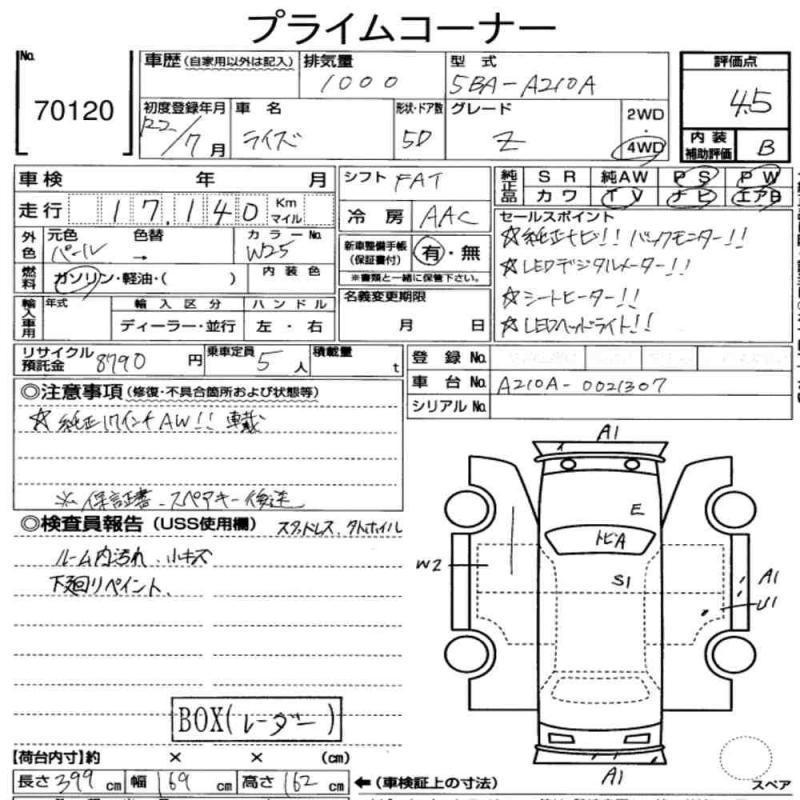 プライムコーナー
No.
70120
車歴(自家用以外は記入)
排気量
1000
型式
5BA-A210A
評価点
4.5
初度登録年月
R2/7月
車名
ライズ
形状・ドア数
5D
グレード
Z
2WD
・
4WD
内装
補助評価
B
車検 年 月
走行 17,140 Km マイル
シフト FAT
冷房 AAC
純正品 SR 純AW PS PW
カワ TV ナビ エアB
外色 元色 パール 色替 → カラーNo. W25
燃料 ガソリン・軽油・( ) 内装色
新車整備手帳(保証書付) 有・無
※書類と一緒に保管下さい。
セールスポイント
☆純正ナビ!! バックモニター!!
☆LEDデジタルメーター!!
☆シートヒーター!!
☆LEDヘッドライト!!
輸入車用 年式 輸入区分 ハンドル
ディーラー・並行 左・右
名義変更期限
月 日
リサイクル預託金 8790円 乗車定員 5人 積載量 t
登録No.
車台No. A210A-0021307
シリアルNo.
◎注意事項(修復・不具合箇所および状態等)
☆純正17インチAW!! 車載
※保証書、スペアキー後送
◎検査員報告(USS使用欄) スタッドレス、タトホイル
ルーム内汚れ、小キズ
下廻りペイント、
BOX(レーダー)
A1
E
トビA
W2
S1
A1
U1
A1
スペア
【荷台内寸】約 × × (cm)
長さ399cm 幅169cm 高さ162cm ←(車検証上の寸法)